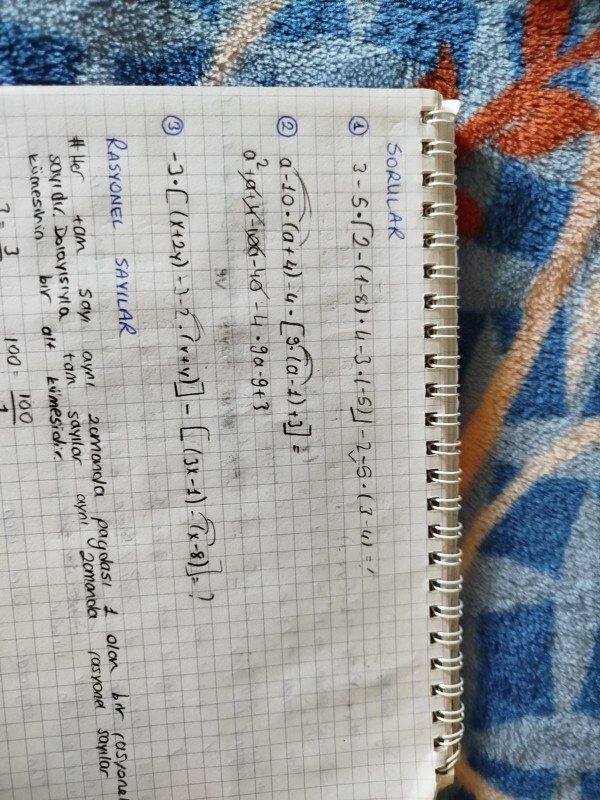 SORULAR
① 3-5·[2-(1-8)·4-3·(-5)]-2-5·(3-4)=?
② a-10·(a+4)-4·[9·(a-1)+3]=
-4·9a-9+3
③ -3·[(x+2y)-2·(x+y)]-[(3x-1)-(x-8)]=?
RASYONEL SAYILAR
# Her tam sayı aynı zamanda paydası 1 olan bir rasyonel
sayıdır. Dolayısıyla tam sayılar aynı zamanda rasyonel sayılar
kümesinin bir alt kümesidir.
100 = 100/1